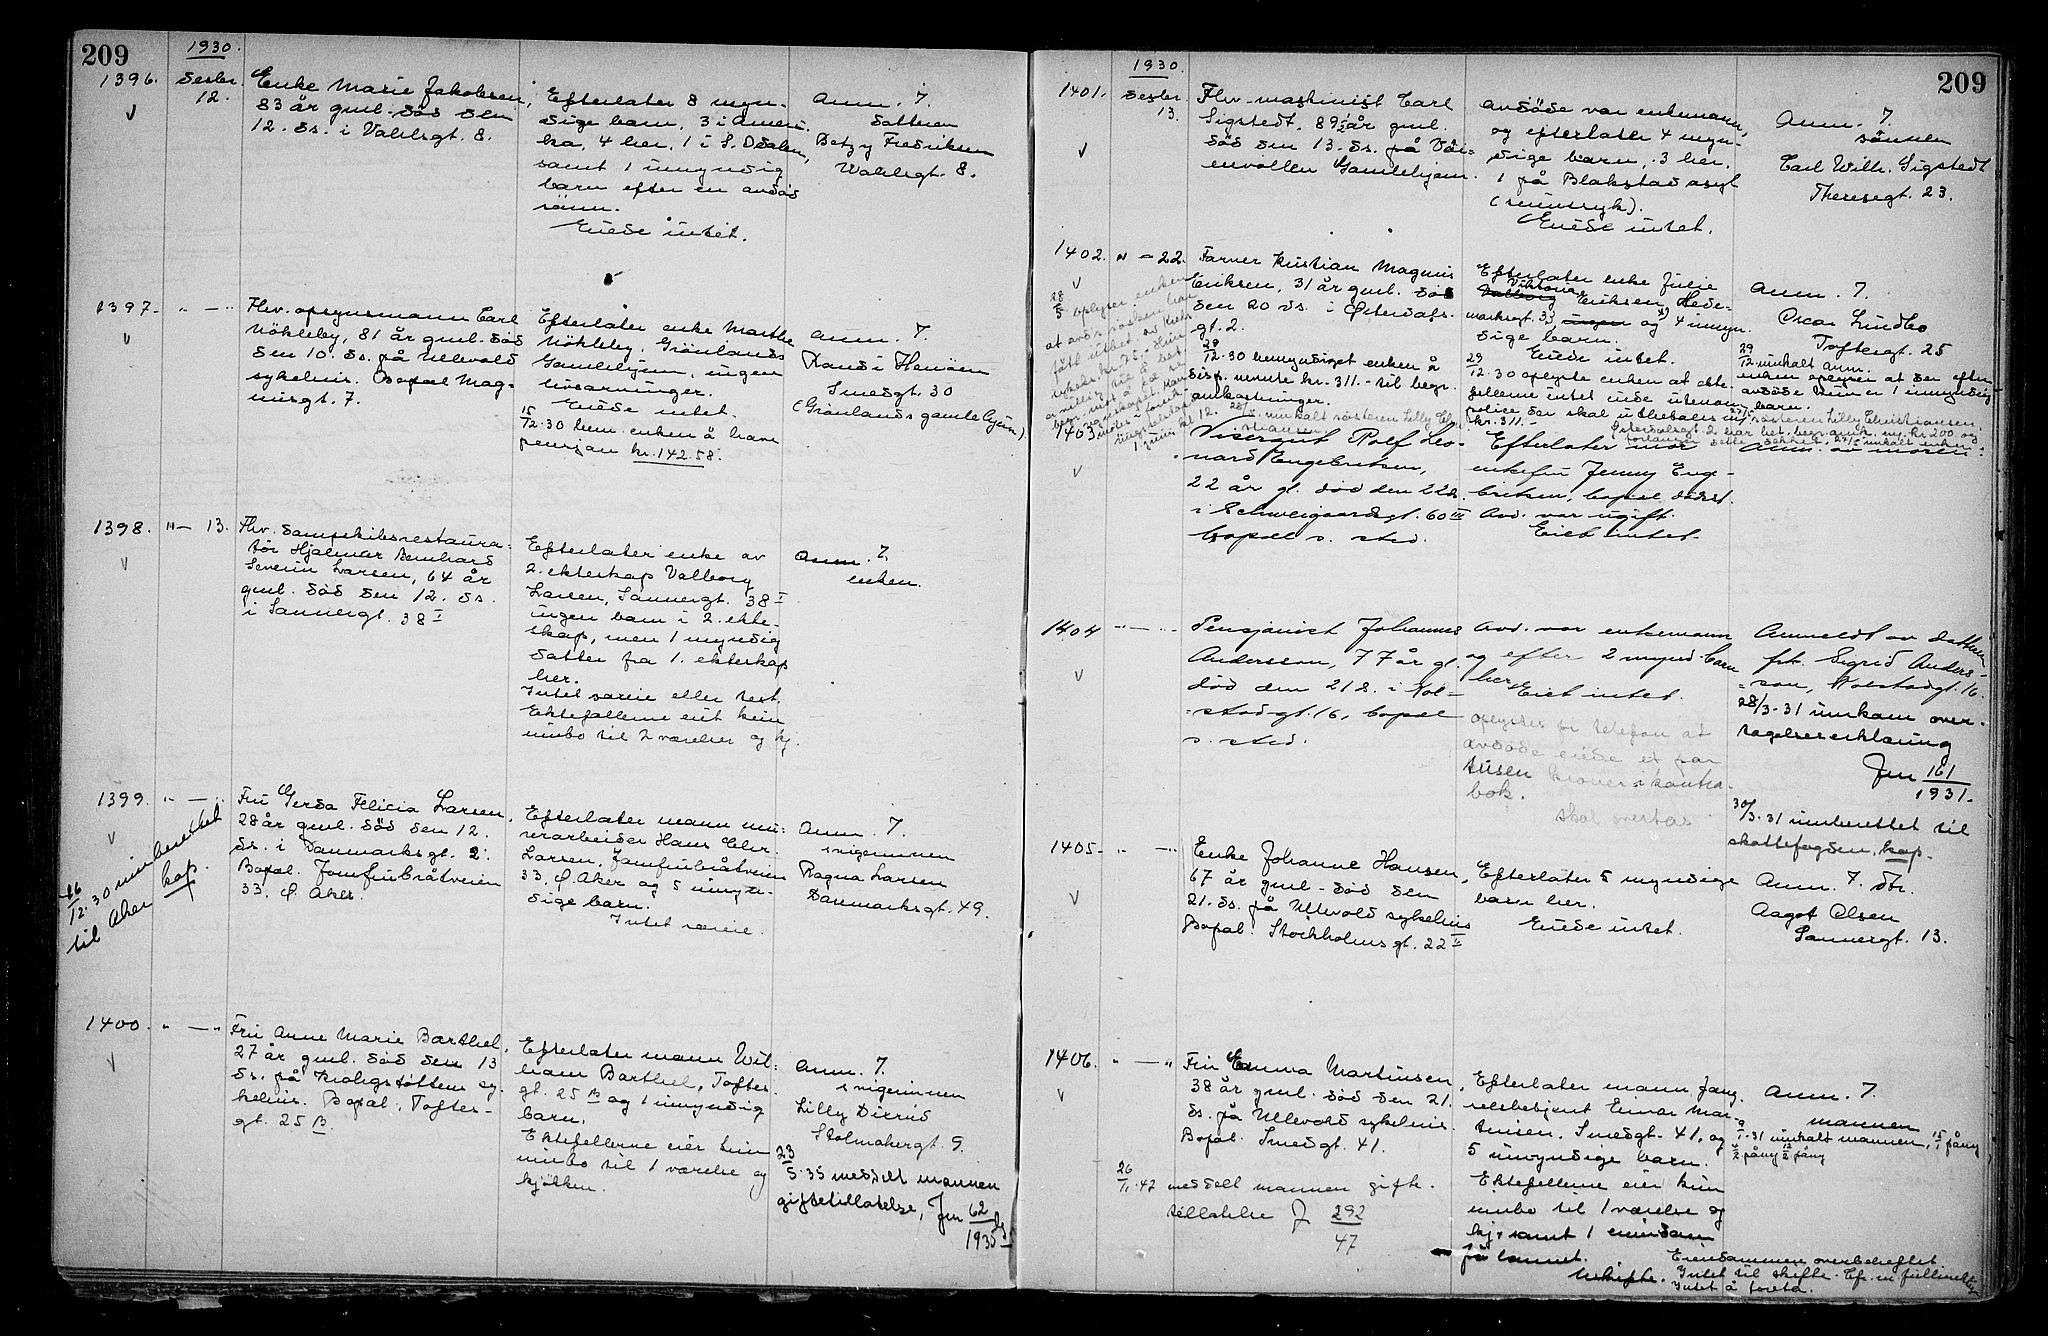 209
1930.
1396.
Desbr.
12.
Enke Marie Jakobsen,
83 år gml. död den
12. ds. i Vahlsgt. 8.
Efterlater 8 myn-
dige barn, 3 i Ameri-
ka, 4 her, 1 i S. Odalen,
samt 1 umyndig
barn efter en avdöd
sönn.
Eiede intet.
Anm. 7.
datteren
Betzy Fredriksen
Vahlsgt. 8.
1397.
" — "
Fhv. opsynsmann Carl
Nökleby, 81 år gml. död
den 10. ds. på Ullevold
sykehus. Bopæl Mag-
nusgt. 7.
Efterlater enke Marthe
Nökleby, Grönlands
Gamlehjem, ingen
livsarvinger.
Eiede intet.
15/12.30 hem. enken å have
pensjon kr. 142.58.
Anm. 7.
Randi Henöen
Smedgt. 30
(Grönlands gamlehjem)
1398.
" — 13.
Fhv. dampskibsrestaura-
tör Hjalmar Bernhard
Severin Larsen, 64 år
gml. död den 12. ds.
i Sannergt. 38 I
Efterlater enke av
2. ekteskap Valborg
Larsen, Sannergt. 38 I
ingen barn i 2. ekte-
skap, men 1 myndig
datter fra 1. ekteskap
her.
Intet særeie eller test.
Ektefellerne eiet kun
innbo til 2 værelser og kj.
Anm. 7.
enken.
1399.
" — "
Fru Gerda Felicia Larsen,
28 år gml. död den 12.
ds. i Danmarksgt. 2.
Bopæl. Jomfrubråtveien
33. Ø. Aker.
16/12.30 innberettet
til Aker kap.
Efterlater mann mu-
rerarbeider Hans Chr.
Larsen, Jomfrubråtveien
33. Ø. Aker og 5 umyn-
dige barn.
Intet særeie.
Anm. 7.
svigerinnen
Ragna Larsen
Danmarksgt. 49.
1400.
" — "
Fru Anne Marie Barthel,
27 år gml. död den 13
ds. på Krohgstöttens sy-
kehus. Bopæl. Toftes-
gt. 25 B.
Efterlater mann Wil-
liam Barthel, Toftes-
gt. 25 B og 1 umyndig
barn.
Ektefellerne eier kun
innbo til 1 værelse og
kjökken.
Anm. 7.
svigerinnen
Lilly Dixrud
Stolmakergt. 9.
23/5.35 meddelt mannen
giftetillatelse, Jnr 62/1935
209
1930.
1401.
Desbr.
13.
Fhv. maskinist Carl
Sigstedt, 89 1/2 år gml.
död den 13. ds. på Voi-
envollen Gamlehjem.
Avdöde var enkemann,
og efterlater 4 myn-
dige barn, 3 her,
1 på Blakstad asyl
(sinnssyk).
Eiede intet.
Anm. 7.
sönnen
Carl Wilh. Sigstedt
Theresegt. 23.
1402.
" — 22.
Farver Kristian Magnus
Eriksen, 31 år gml. död
den 20 ds. i Østerdals-
gt. 2.
29/12.30 bemyndiget enken å
disp. nevnte kr. 311.- til begr.
omkostninger.
Efterlater enke Julie
Viktoria
Valborg Eriksen, Hede-
marksgt. 33 ingen og 4 umyn-
dige barn.
Eiede intet.
29/12.30 oplyste enken at ekte-
fellerne intet eiede utenom
police, der skal utbetales m/
kr. 311.-
Anm. 7.
Oscar Lindbo
Toftesgt. 25
29/12 innkalt anm.
enken oplyser at den efter
avdöde kun er 1 umyndig
barn.
1403
Visergut Rolf Leo-
nard Engebretsen,
22 år gl. död den 22 ds.
i Schweigaardsgt. 60 III
bopæl s. sted.
Efterlater mor
enkefru Jenny Enge-
bretsen, bopæl sists.
Avd. var ugift.
Eiet intet.
Anm. av moren.
1404
" — "
Pensjonist Johannes
Andersson, 77 år gl.
död den 21 ds. i Nol-
stadgt. 16, bopæl
s. sted.
Avd. var enkemann
og efter 2 mynd. barn
her. Eiet intet.
oplystes pr. telefon at
avdöde eiede et par
tusen kroner i kontra-
bok.
skal overtas
Anmeldt av datteren
frk. Sigrid Anders-
son, Nolstadgt. 16.
28/3-31 innkom over-
tagelseserklæring
Jnr 161/1931.
30/3.31 innberettet til
skattefogden, kap.
1405.
" — "
Enke Johanne Hansen,
67 år gml. död den
21. ds. på Ullevold sykehus
Bopæl. Stockholmsgt. 22 II
Efterlater 5 myndige
barn her.
Eiede intet.
Anm. 7. dtr.
Aagot Olsen
Sannergt. 13.
1406.
" — "
Fru Emma Martinsen,
38 år gml. död den 21.
ds. på Ullevold sykehus.
Bopæl. Smedgt. 41.
26/11.47 meddelt mannen gifte-
tillatelse J 292/47
Efterlater mann fang-
selsbetjent Einar Mar-
tinsen, Smedgt. 41, og
5 umyndige barn.
Ektefellerne eier kun
innbo til 1 værelse og
kj. samt 1 eiendom
på lannet.
Anm. 7.
mannen
9/1.31 innkalt mannen, 15/1 påny
4/2 påny 12/2 påny
Eiendommen overbeheftet
Uskifte. Intet til skifte.
Intet å foreta.